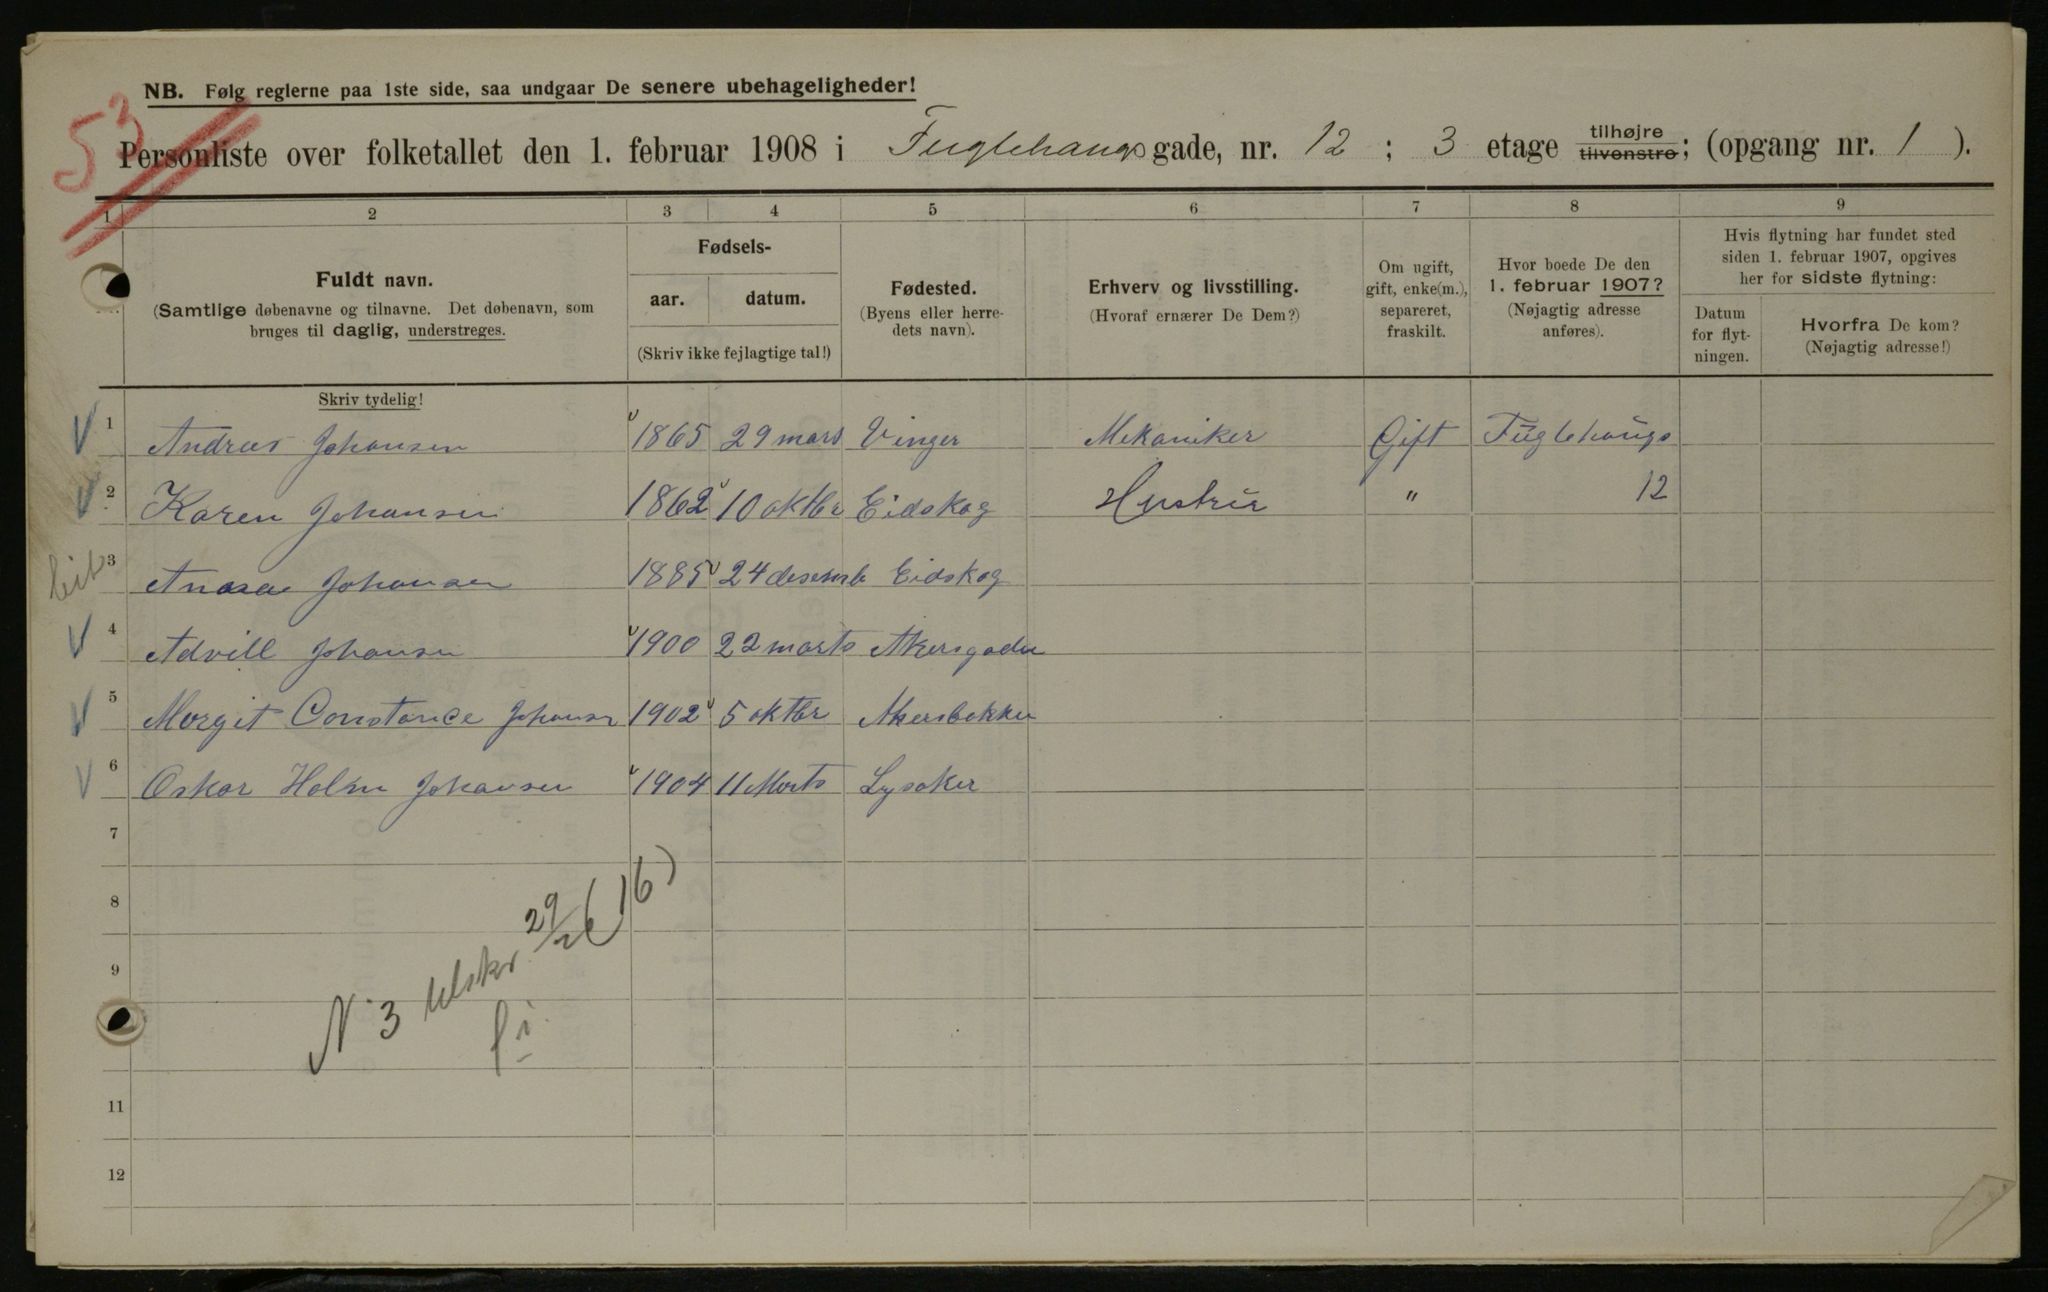 NB. Følg reglerne paa 1ste side, saa undgaar De senere ubehageligheder!
53
Personliste over folketallet den 1. februar 1908 i Fuglehaugs gade, nr. 12 ; 3 etage tilhøjre tilvenstre; (opgang nr. 1 ).
1 2 3 4 5 6 7 8 9
Fuldt navn.
(Samtlige døbenavne og tilnavne. Det døbenavn, som
bruges til daglig, understreges.
Fødsels-
aar. datum.
(Skriv ikke fejlagtige tal!)
Fødested.
(Byens eller herre-
dets navn).
Erhverv og livsstilling.
(Hvoraf ernærer De Dem?)
Om ugift,
gift, enke(m.),
separeret,
fraskilt.
Hvor boede De den
1. februar 1907?
(Nøjagtig adresse
anføres).
Hvis flytning har fundet sted
siden 1. februar 1907, opgives
her for sidste flytning:
Datum
for flyt-
ningen.
Hvorfra De kom?
(Nøjagtig adresse!)
Skriv tydelig!
1 Andreas Johansen 1865 29 mars Vinger Mekaniker Gift Fuglehaugs
2 Karen Johansen 1862 10 oktbr Eidskog Hustru " 12
3 Johansen 1885 24 desemb Eidskog
4 Advill Johansen 1900 22 marts Akersgaden
5 Margit Constance Johansen 1902 5 oktbr Akersbakken
6 Oskar Holm Johansen 1904 11 Marts Lysaker
7
8
9
11
12
N 3 29/2 (16)